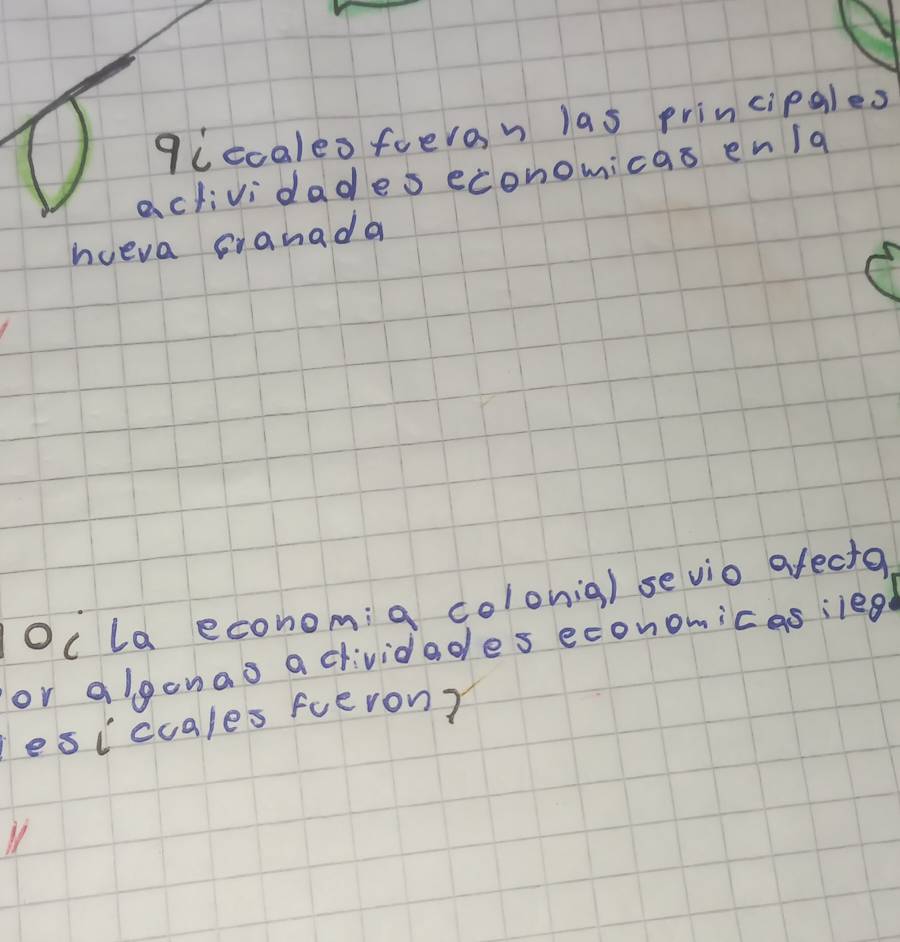 9¿ccales fueran las principales
actividades economicas en la
nueva Granada
10¿La economia colonial se vio afecta
or algunas actividades economicas ileg
es¿ccuales fueron?